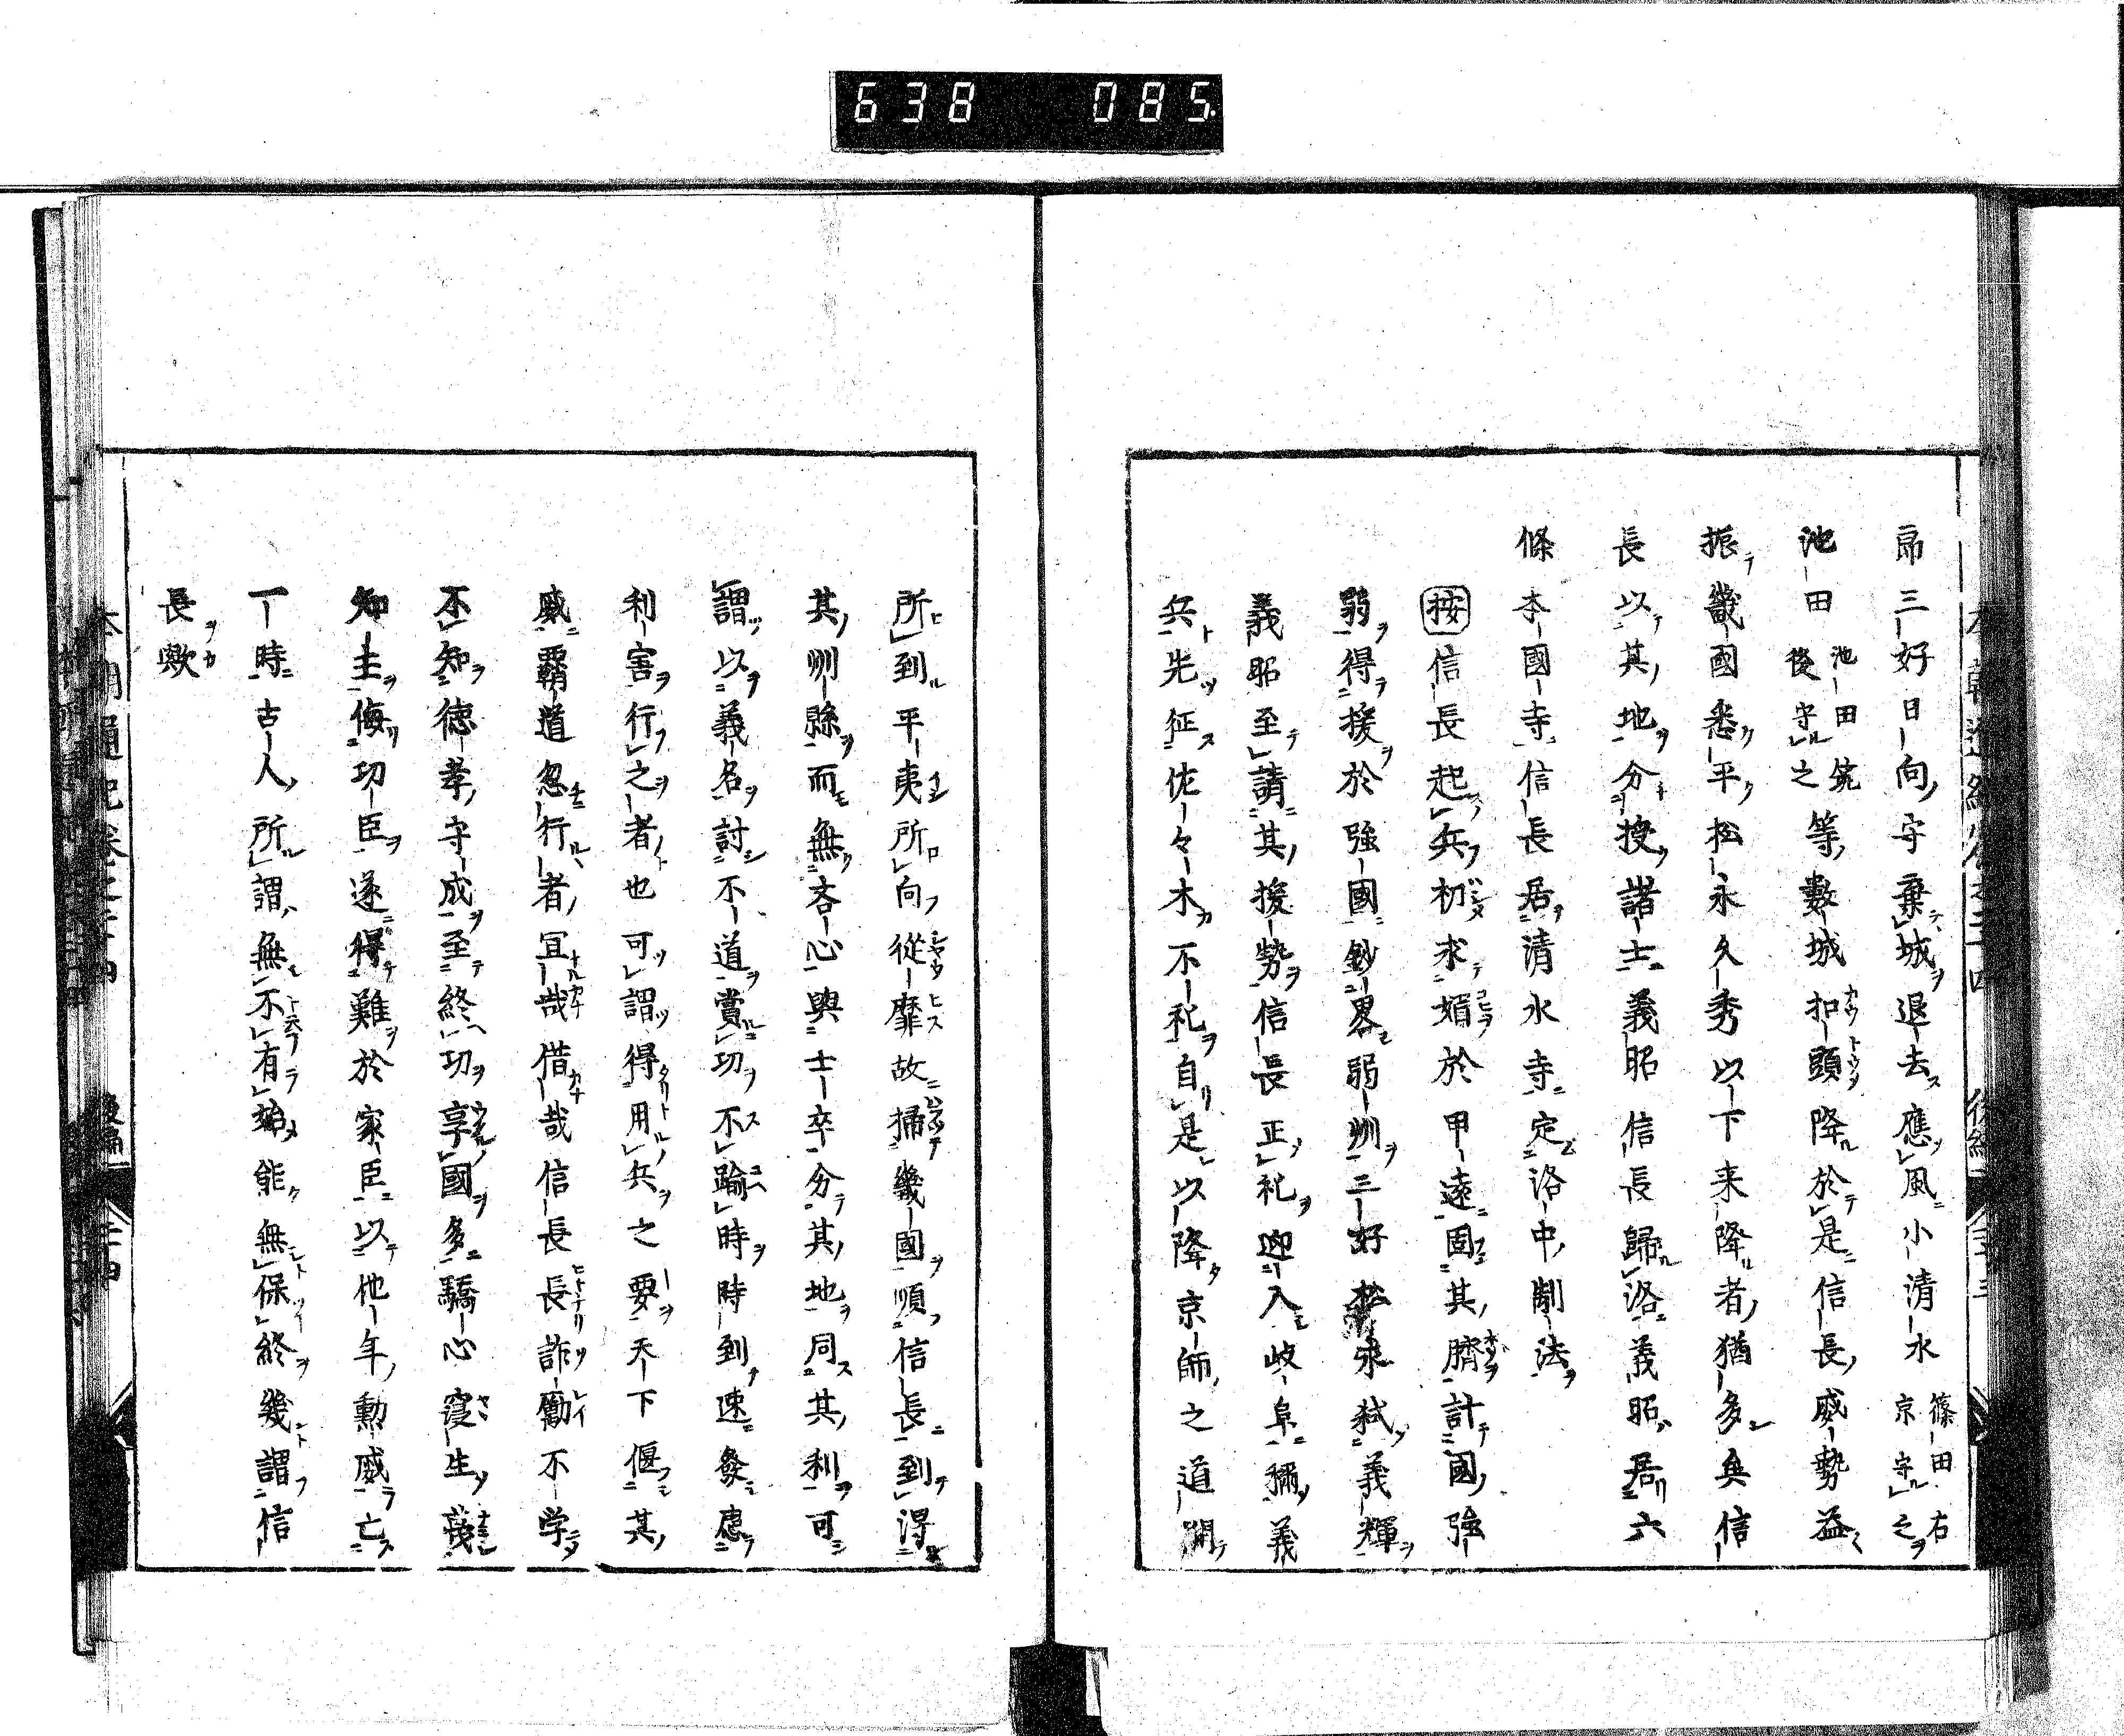 638 085
昴三好日向守棄城退去應風小清水 篠田右京守之
池田 池田筑後守之 等數城扣頭降於是信長威勢益
振畿國悉平松永久秀以下来降者猶多矣信
長以其地分授諸士義昭信長歸洛義昭居六
條本國寺信長居清水寺定洛中制法
按信長起兵初求婚於甲遠固其臍計國強
弱得援於強國鈔畧弱州三好松永弑義輝
義昭至請其援勢信長正礼迎入岐阜稱義
兵先征佐々木不礼自是以降京師之道開
所到平夷所向從靡故掃畿國順信長到得
其州縣而無吝心與士卒分其地同其利可
謂以義名討不道賞功不踰時時到速發慮
利害行之者也可謂得用兵之要天下偃其
威霸道忽行者宜哉借哉信長長詐勵不学
不知徳孝守成至終功享國多驕心寔生
知主侮功臣遂得難於家臣以他年勲威亡
一時古人所謂無不有始能無保終幾謂信
長歟
本朝通紀卷之二十四 後編 二十四